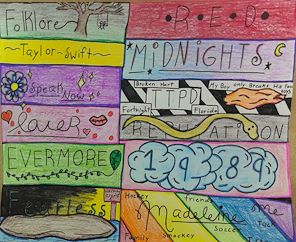 Folklore
RED
Taylor-Swift
MiDNiGHTS
Speak Now
Broken Hart
My Boy only Breaks His Fav
TTPD
Fortnight
Florida
Lover
REPUTATION
EVERMORE
1989
Fearless
Hockey
friends
Madeleine
me
Soccer
Family
Smockey